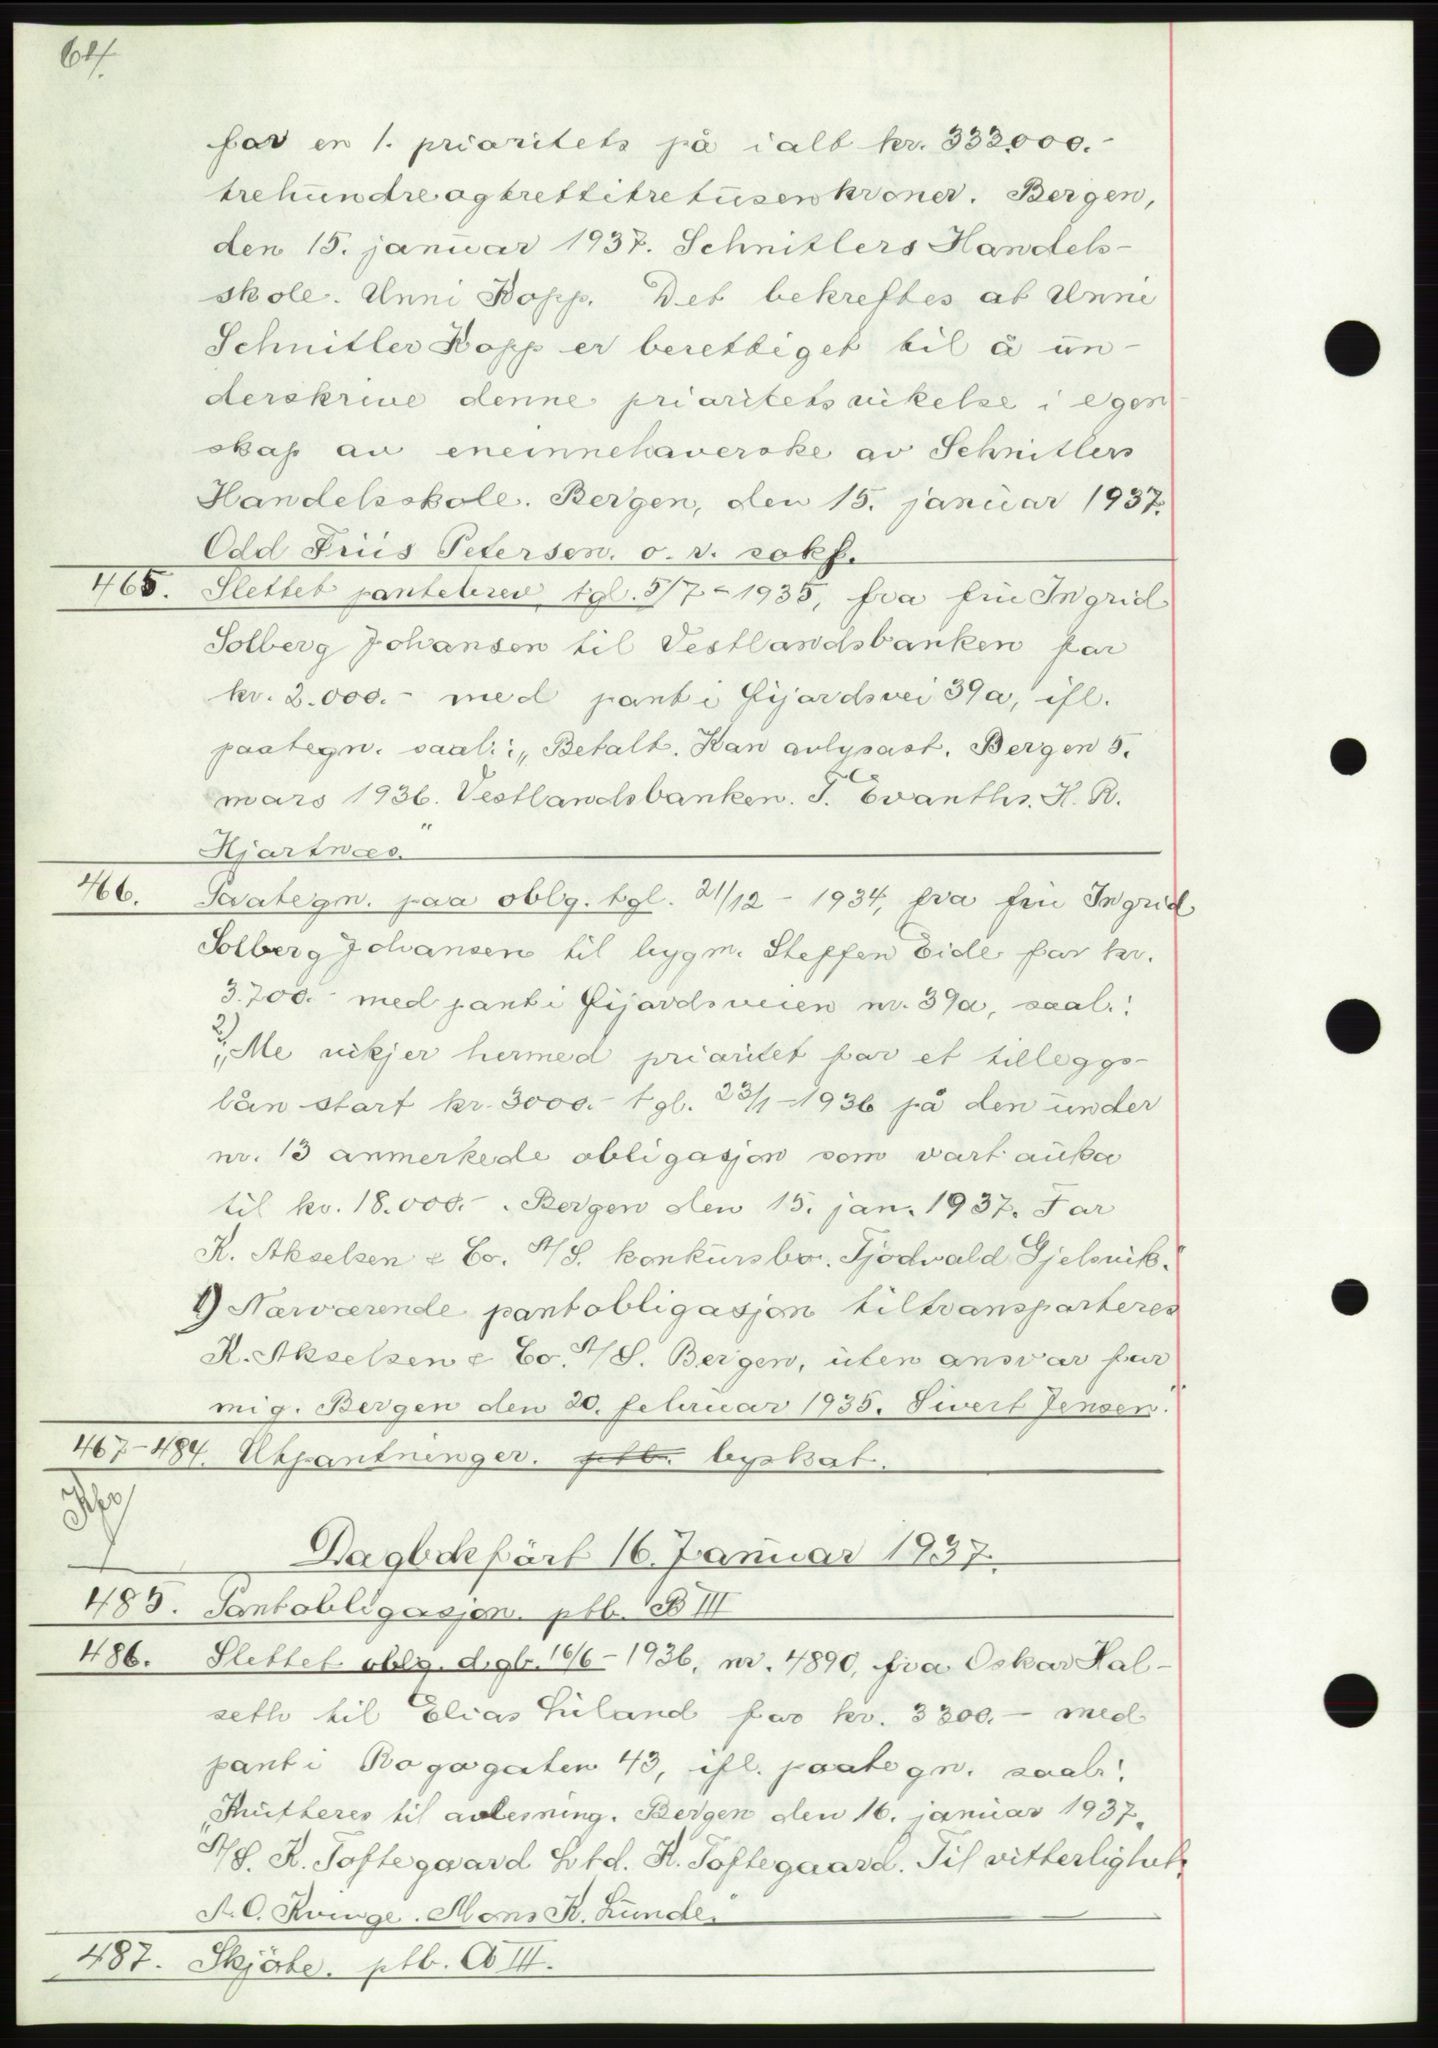 64.
for en 1. prioritets på ialt kr. 333.000.-
trehundreogtrettitretusen kroner. Bergen,
den 15. januar 1937. Schnitlers Handels-
skole. Unni Kopp. Det bekreftes at Unni
Schnitler Kopp er berettiget til å un-
derskrive denne prioritetsvikelse i egen
skap av eneinnehaverske av Schnitlers
Handelsskole. Bergen, den 15. januar 1937.
Odd Friis Petersen. o. r. sakf.
465. Slettet pantebrev tgl. 5/7-1935, fra fru Ingrid
Solberg Johansen til Vestlandsbanken for
kr. 2.000.- med pant i 39a, ifl.
paategn. saal.: „Betalt. Kan avlysast. Bergen 5.
mars 1936. Vestlandsbanken. T. H. R.
Hjartnæs."
466. Paategn. paa oblg. tgl. 21/12 - 1934, fra fru Ingrid
Solberg Johansen til bygm. Steffen Eide for kr.
3.700.- med pant i nr. 39a, saal.:
2) „Me vikjer hermed prioritet for et tilleggs-
lån stort kr. 3000.- tgl. 23/1-1936 på den under
nr. 13 anmerkede obligasjon som vart auka
til kr. 18.000.-. Bergen den 15. jan. 1937. For
K. Akselsen & Co. A/S. konkursbo. Tjodvald Gjelsvik."
1) Nærværende pantobligasjon tiltransporteres
K. Akselsen & Co. A/S. Bergen, uten ansvar for
mig. Bergen den 20. februar 1935. Sivert Jensen."
467-484. Utpantninger. ptb. byskat.
Dagbokført 16. Januar 1937.
485. Pantobligasjon. ptb. B III
486. Slettet oblg. dgb. 16/6-1936, nr. 4890, fra Oskar Hal-
seth til Elias Luland for kr. 3300.- med
pant i 43, ifl. paategn. saal.:
„Kvitteres til avlesning. Bergen den 16. januar 1937.
A/S. K. Toftegaard Ltd. K. Toftegaard. Til vitterlighet:
A. O. Kvinge. Mons K. Lunde."
487. Skjøte. ptb. A III.